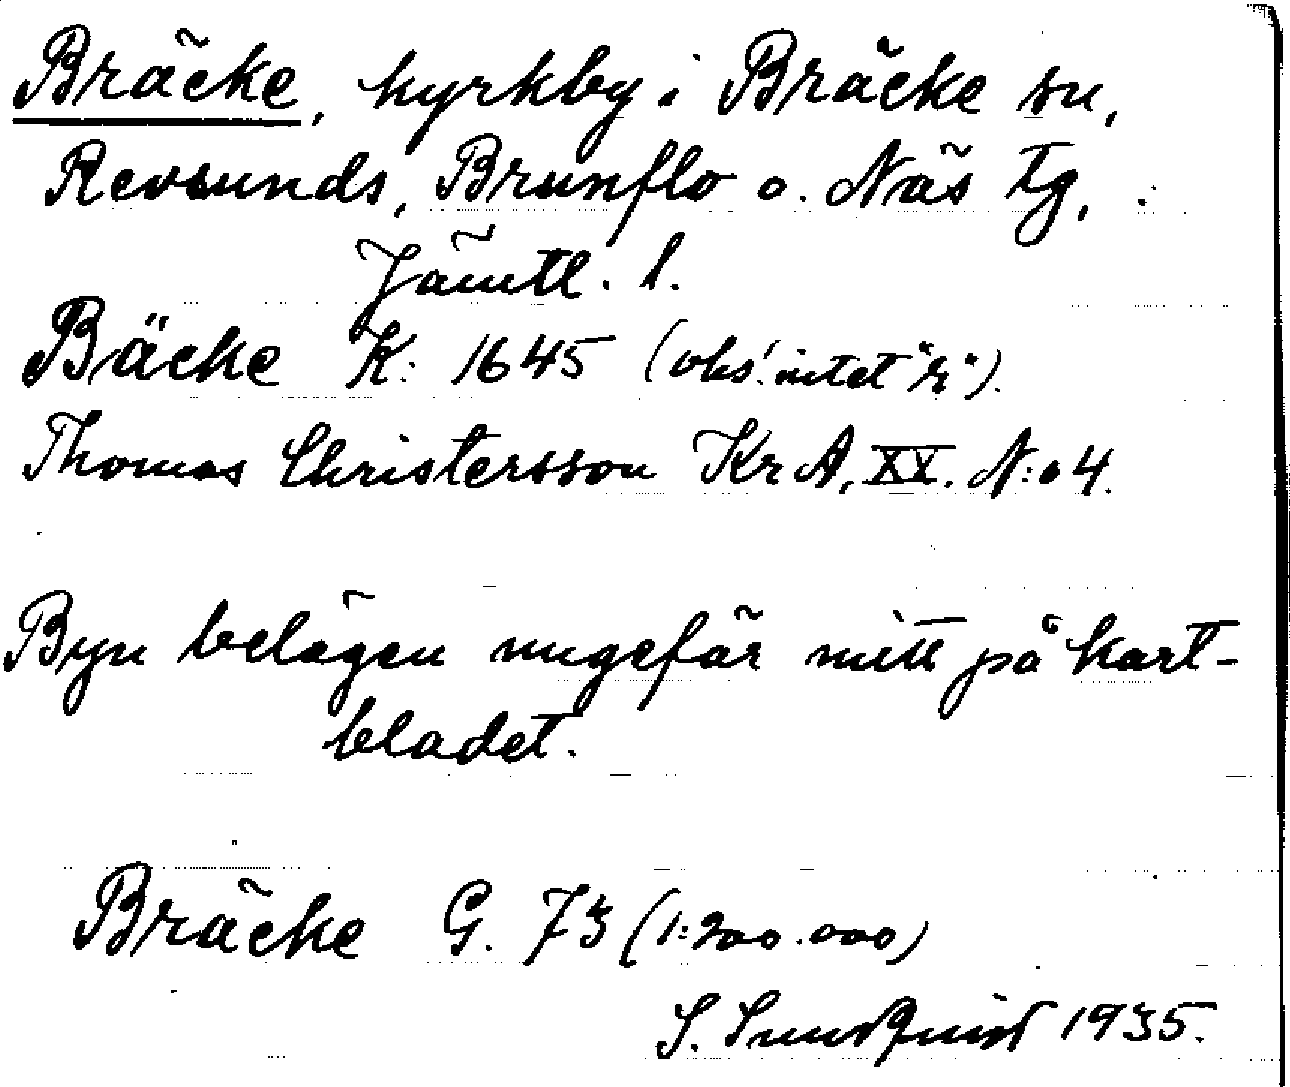 Bräcke, kyrkby i Bräcke sn,
Revsunds, Brunflo o. Näs tg,
Jämtl. l.
Bäcke K: 1645 (obs! intet "r").
Thomas Christersson Kr A, XX. N:o 4.
Byn belägen ungefär mitt på kart-
bladet.
Bräcke G. 73 (1:200.000)
S. Sundquist 1935.